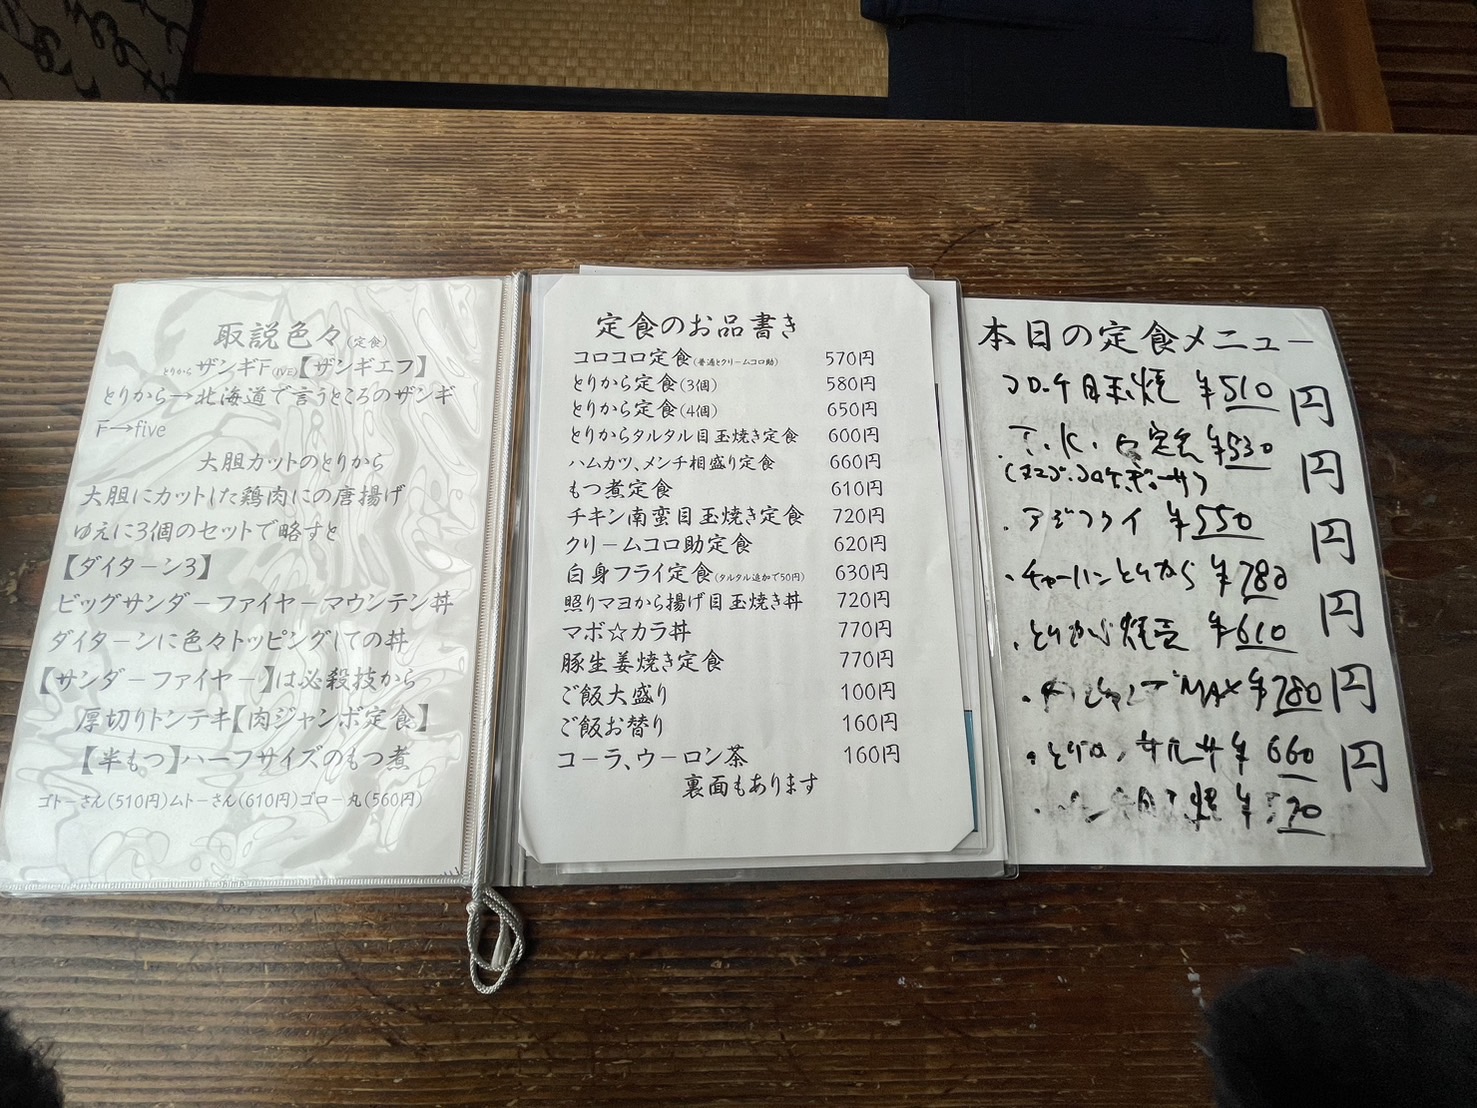 取説色々(定食)
とりから ザンギF(IVE)【ザンギエフ】
とりから→北海道で言うところのザンギ
F→five
大胆カットのとりから
大胆にカットした鶏肉にの唐揚げ
ゆえに3個のセットで略すと
【ダイターン3】
ビッグサンダーファイヤーマウンテン丼
ダイターンに色々トッピングしての丼
【サンダーファイヤー】は必殺技から
厚切りトンテキ【肉ジャンボ定食】
【半もつ】ハーフサイズのもつ煮
ゴトーさん(510円)ムトーさん(610円)ゴロー丸(560円)
定食のお品書き
コロコロ定食(普通とクリームコロ助) 570円
とりから定食(3個) 580円
とりから定食(4個) 650円
とりからタルタル目玉焼き定食 600円
ハムカツ、メンチ相盛り定食 660円
もつ煮定食 610円
チキン南蛮目玉焼き定食 720円
クリームコロ助定食 620円
白身フライ定食(タルタル追加で50円) 630円
照りマヨから揚げ目玉焼き丼 720円
マボ☆カラ丼 770円
豚生姜焼き定食 770円
ご飯大盛り 100円
ご飯お替り 160円
コーラ、ウーロン茶 160円
裏面もあります
本日の定食メニュー
コロッケ目玉焼 ¥510 円
定食 ¥530 円
・アジフライ ¥550 円
・チャーハンとりから ¥780 円
・とりから焼売 ¥610 円
MAX ¥780 円
¥ 660 円